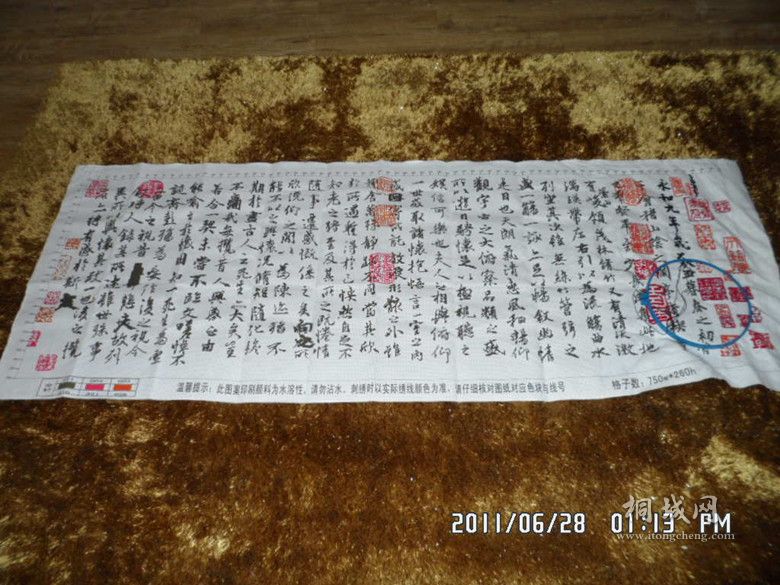 永和九年歲在癸丑暮春之初會
稽山陰之蘭
此地
有崇山峻領茂林脩竹又有清流激
湍暎帶左右引以為流觴曲水
列坐其次雖無絲竹管弦之
盛一觴一詠亦足以暢叙幽情
是日也天朗氣清惠風和暢仰
觀宇宙之大俯察品類之盛
所以遊目騁懷足以極視聽之
娛信可樂也夫人之相與俯仰
一世或取諸懷抱悟言一室之內
或因寄所託放浪形骸之外雖
趣舍萬殊靜躁不同當其欣
於所遇蹔得於己怏然自足不
知老之將至及其所之既惓情
隨事遷感慨係之矣向之所
欣俛仰之閒以為陳迹猶不
能不以之興懷況脩短隨化終
期於盡古人云死生亦大矣豈
不痛哉每攬昔人興感之由
若合一契未嘗不臨文嗟悼不
能喻之於懷固知一死生為虛
誕齊彭殤為妄作後之視今
亦由今之視昔悲夫故列
敘時人錄其所述雖世殊事
異所以興懷其致一也後之攬
者亦將有感於斯文
温馨提示：此图案印刷颜料为水溶性，请勿沾水，刺绣时以实际绣线颜色为准，请仔细核对图纸对应色块与线号
格子数：750w*260h
2011/06/28 01:13 PM
桐城网
www.itongcheng.com